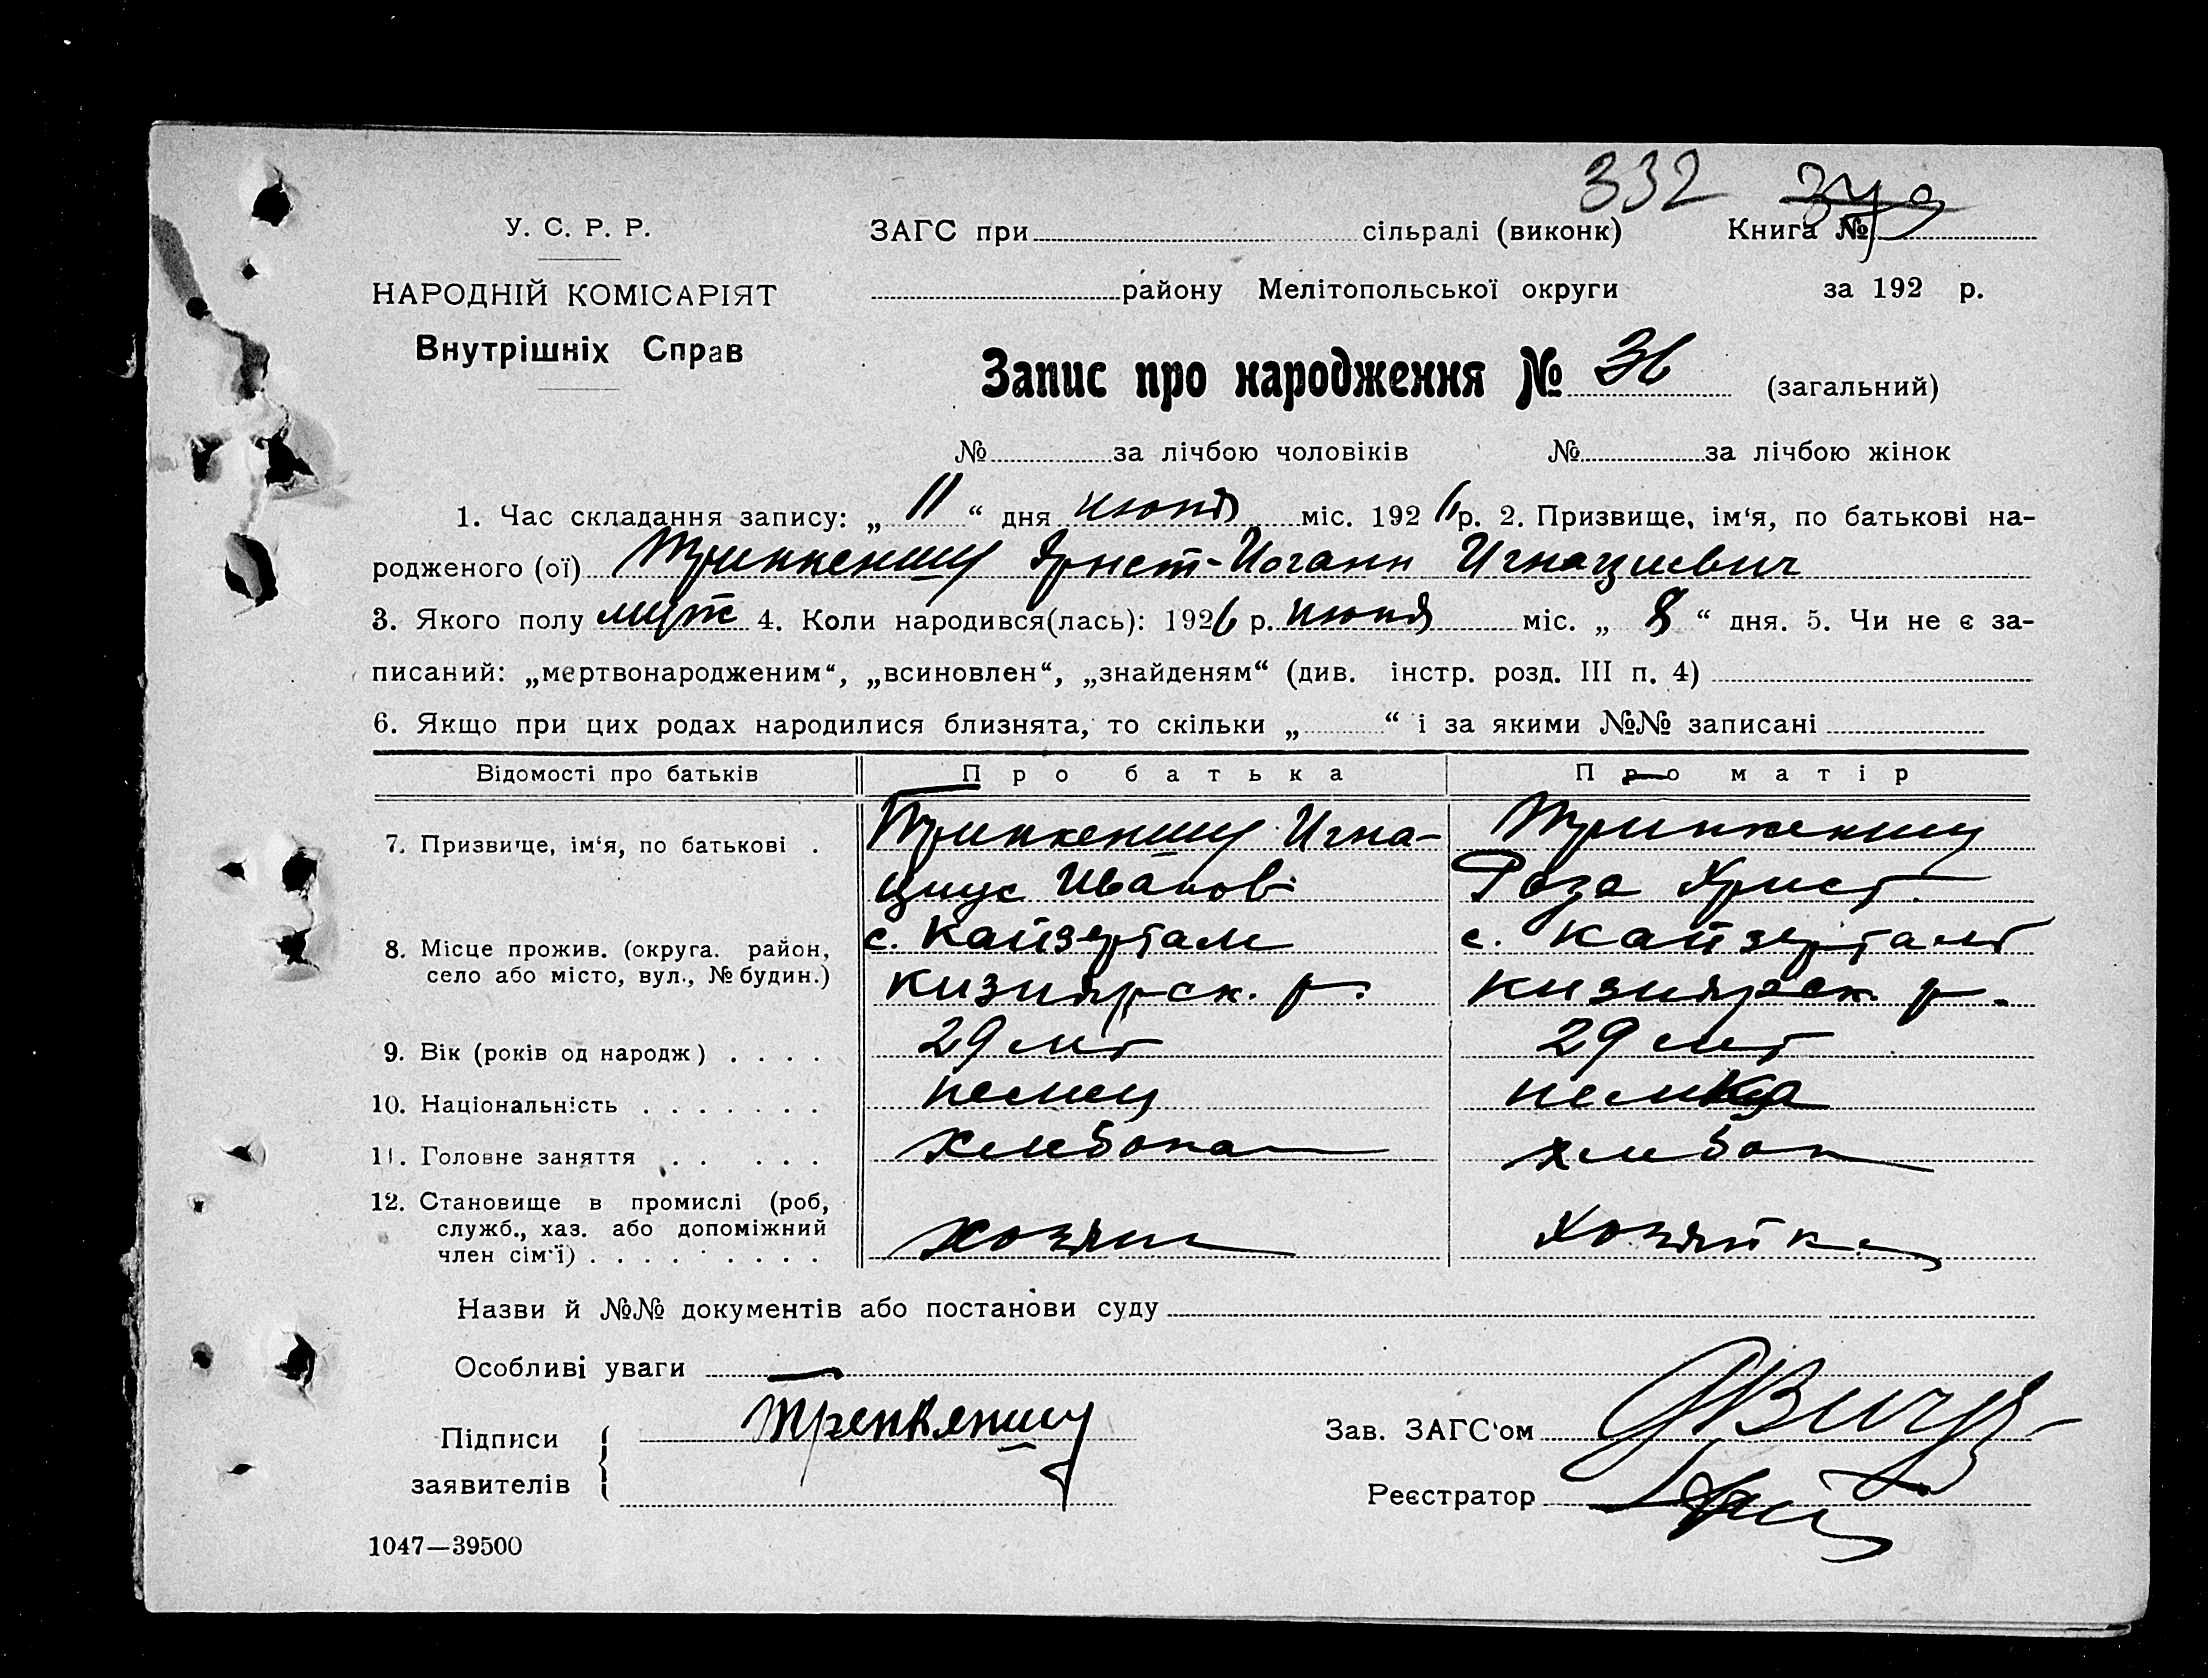 332 379
У. С. Р. Р. ЗАГС при сільраді (виконк) Книга №
НАРОДНІЙ КОМІСАРІЯТ району Мелітопольської округи за 192 р.
Внутрішніх Справ
Запис про народження № 36 (загальний)
№ за лічбою чоловіків № за лічбою жінок
1. Час складання запису: „ 11 “ дня июня міс. 192 6 р. 2. Призвище, ім‘я, по батькові на-
родженого (ої) Тринкеншу Эрнст-Иоганн Игнациевич
3. Якого полу муж 4. Коли народився(лась): 1926 р. июня міс. „ 8 “ дня. 5. Чи не є за-
писаний: „мертвонародженим“, „всиновлен“, „знайденям“ (див. інстр. розд. III п. 4)
6. Якщо при цих родах народилися близнята, то скільки „ “ і за якими №№ записані
Відомості про батьків Про батька Про матір
7. Призвище, ім‘я, по батькові . Тринкеншу Игна- Тринкеншу
циус Иванов Роза Христ.
8. Місце прожив. (округа. район, с. Кайзерталь с. Кайзерталь
село або місто, вул., № будин.) Кизиярск. р. Кизиярск. р.
9. Вік (років од народж) . . . . 29 лет 29 лет
10. Національність . . . . . . . немец немка
11. Головне заняття . . . . . . хлебопа хлебоп
12. Становище в промислі (роб,
служб., хаз. або допоміжний
член сім‘ї) . . . . . . . . хозяин хозяйка
Назви й №№ документів або постанови суду
Особливі уваги —
Підписи Тренкеншу Зав. ЗАГС‘ом
заявителів Реєстратор
1047—39500